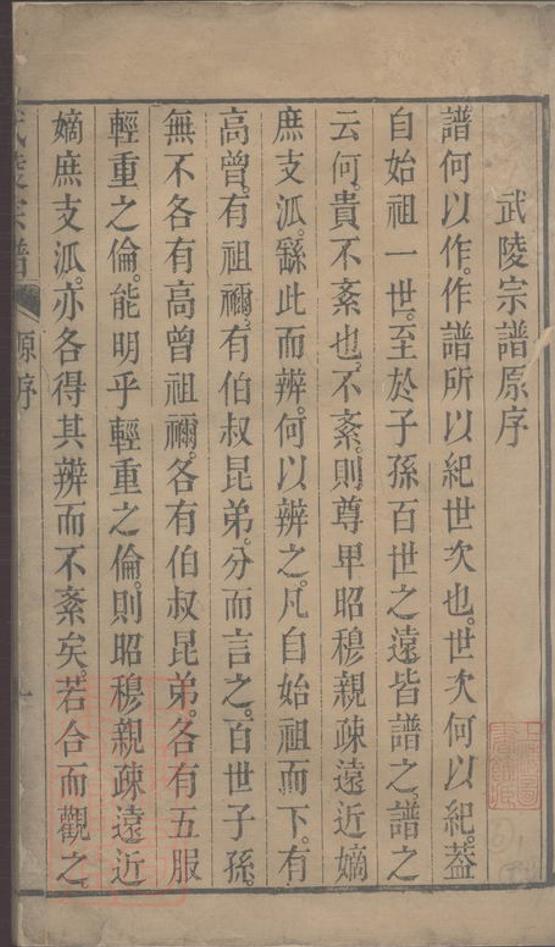 武陵宗譜原序
譜何以作。作譜所以紀世次也。世次何以紀。蓋
自始祖一世。至於子孫百世之遠。皆譜之。譜之
云何。貴不紊也。不紊。則尊卑昭穆親疎遠近嫡
庶支泒。繇此而辨。何以辨之。凡自始祖而下。有
高曾。有祖禰。有伯叔昆弟。分而言之。百世子孫。
無不各有高曾祖禰。各有伯叔昆弟。各有五服
輕重之倫。能明乎輕重之倫。則昭穆親疎遠近
嫡庶支泒。亦各得其辨而不紊矣。若合而觀之。
武陵宗譜 原序 一